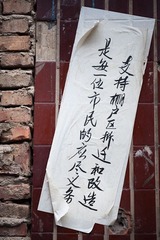 支持棚户区拆迁和改造
是每一位市民的应尽义务